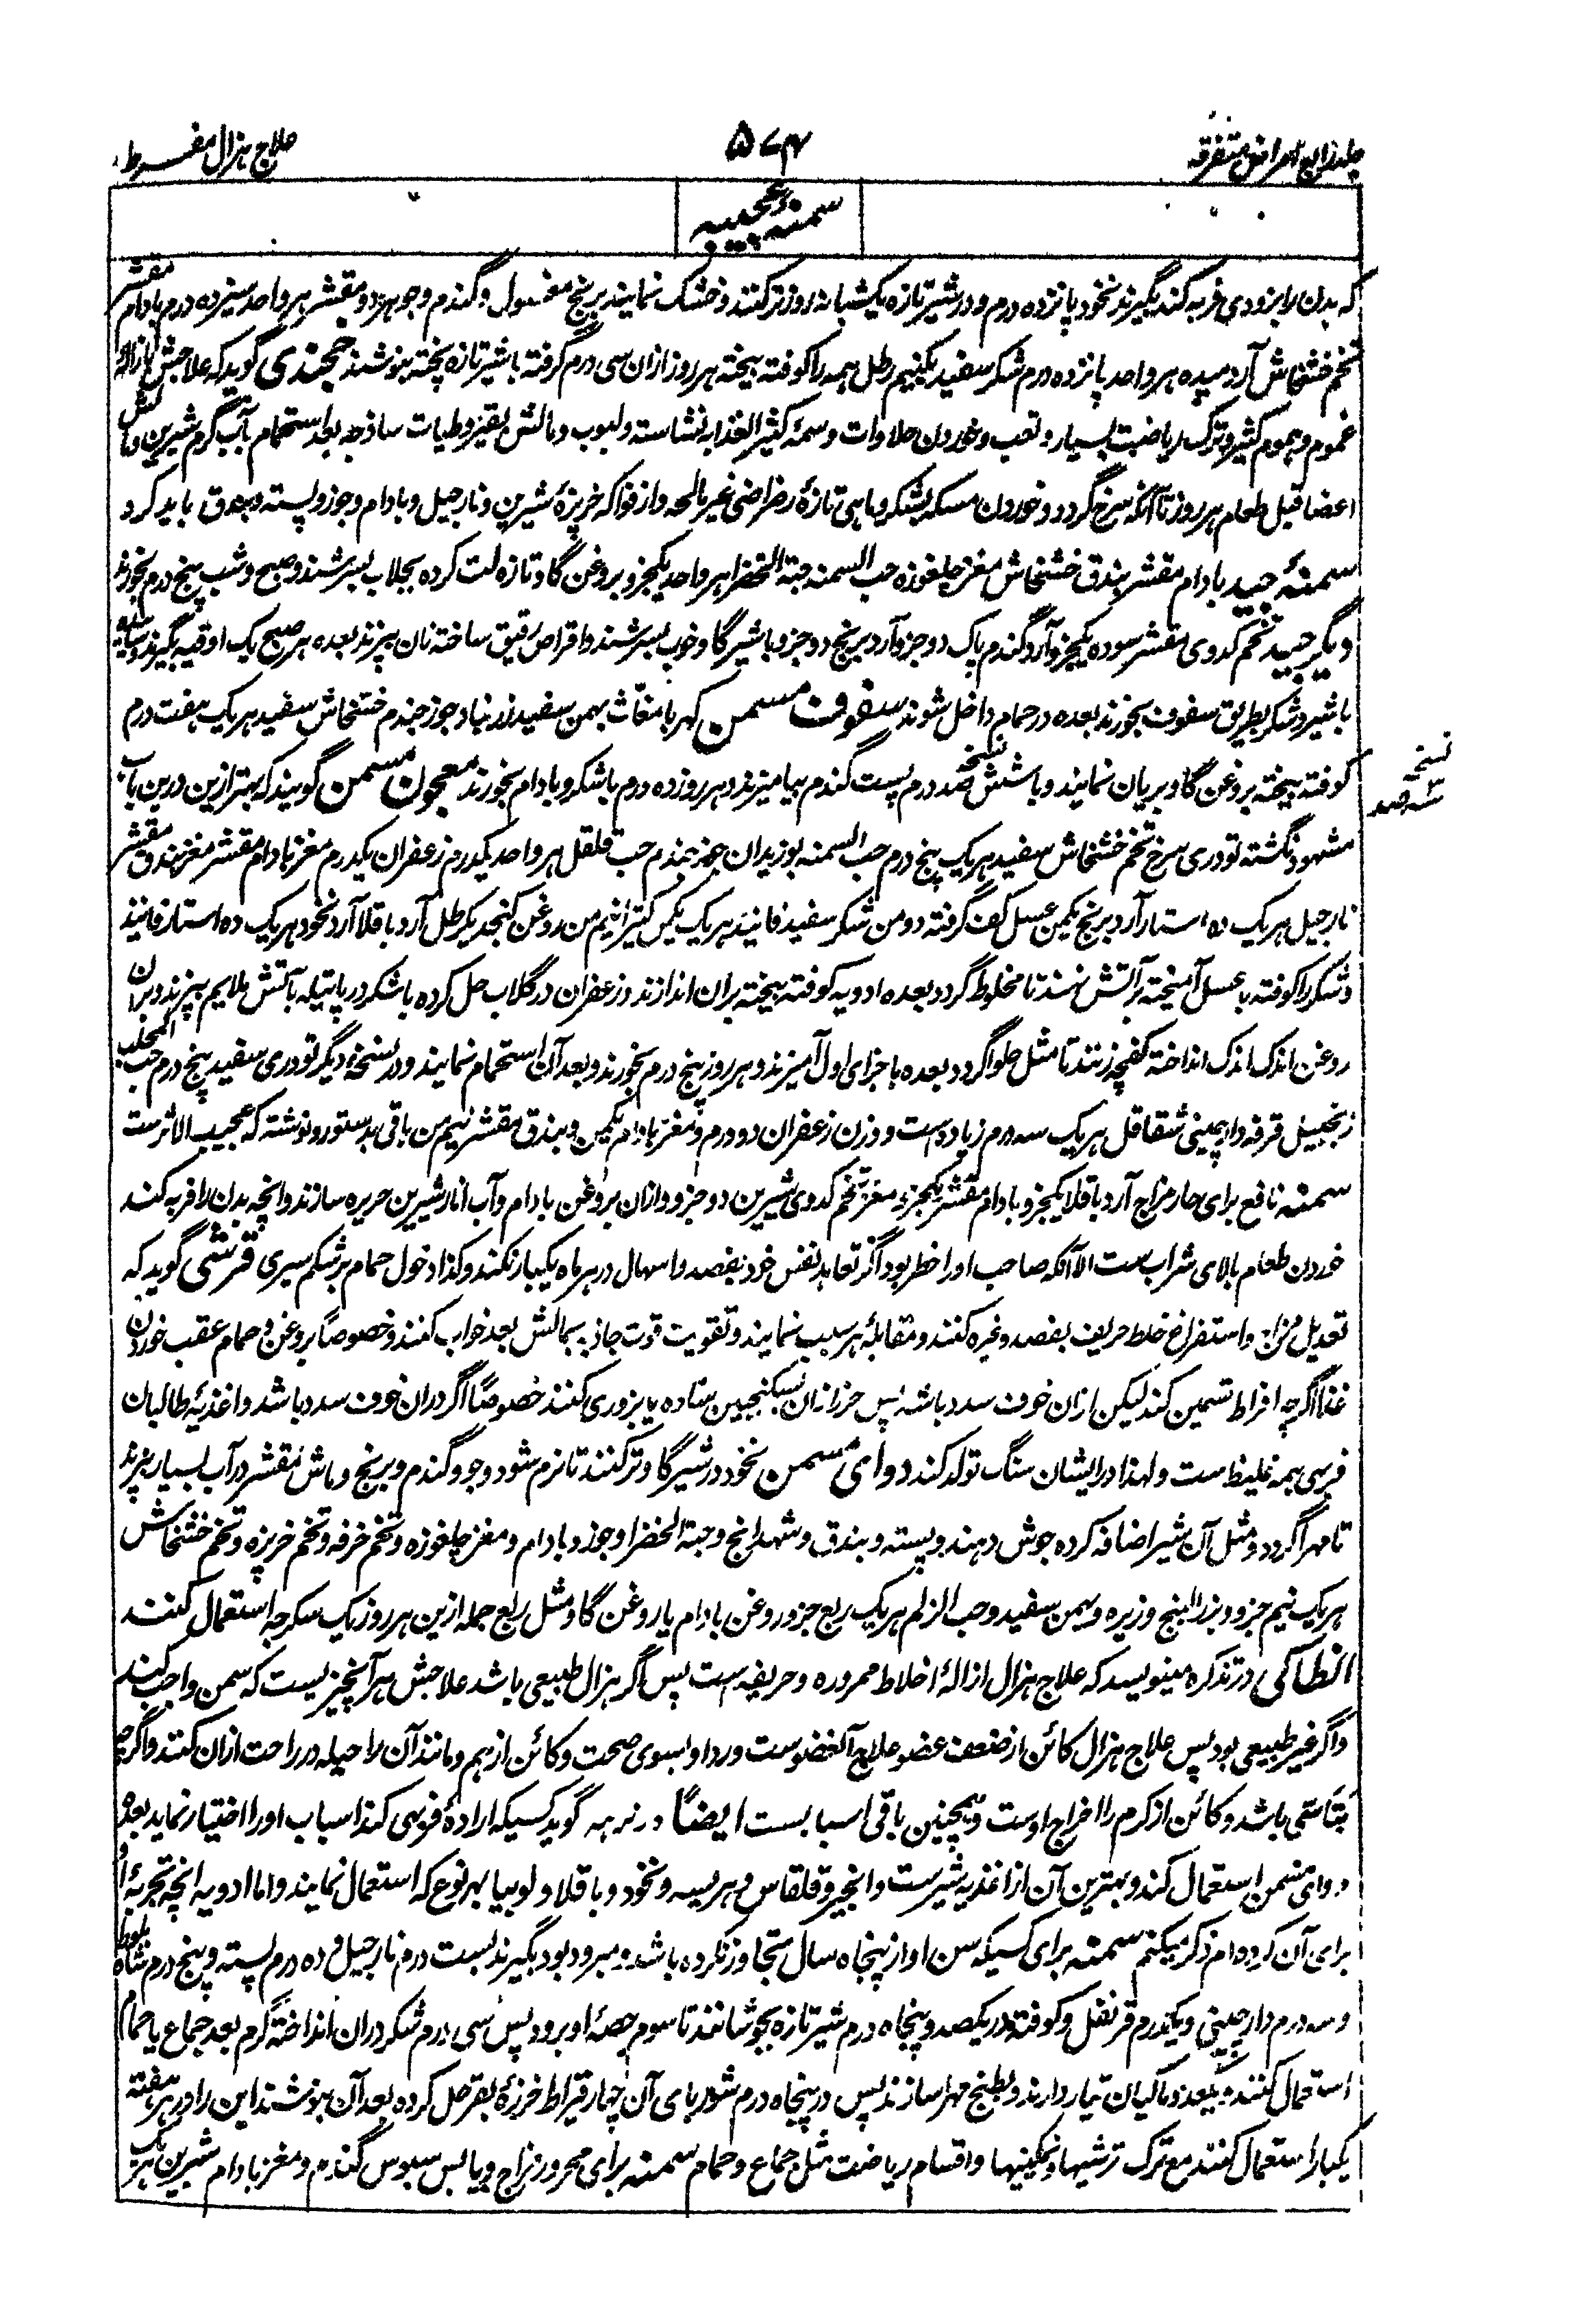 جلد رابع امراض متفرقه
۵۷۴
علاج هزال مفرط
سمنه عجیبه
که بدن را بزودی فربه کند بگیرند نخود پانزده درم و در شیر تازه یکشبانه روز تر کنند و خشک نمایند برنج مغسول و گندم و جو هر دو مقشر هر واحد سیزده درم بادام مقشر
تخم خشخاش آرد میده هر واحد پانزده درم شکر سفید یکنیم رطل همه را کوفته بیخته هر روز ازان سی درم گرفته با شیر تازه پخته بنوشند خجندی گوید که علاجش ازاله
غموم و هموم کثیر و ترک ریاضت بسیار و تعب و خوردن حلاوات و سمۀ کثیر الغذا به نشاسته و لبوب و مالش بقیروطیات ساذجه بعد استحمام بآب گرم شیرین و مالش
اعضا قبل طعام هر روز تا آنکه سرخ گردد و خوردن مسکه بشکر و ماهی تازۀ رضراضی غیر مالحه و از فواکه خربزۀ شیرین و نارجیل و بادام و جوز و پسته و بندق باید کرد
سمنۀ جید بادام مقشر بندق خشخاش مغز چلغوزه حب السمنه حبة الخضرا هر واحد یکجزو بروغن گاو تازه لت کرده بجلاب بسرشند و صبح و شب پنج درم بخورند
دیگر جید تخم کدوی مقشر سوده یکجزو آرد گندم پاک دو جزو آرد برنج دو جزو با شیر گاو خوب بسرشند و اقراص رقیق ساخته نان بپزند بعده هر صبح یک اوقیه بگیرند و سائیده
با شیر و شکر بطریق سفوف بخورند بعده در حمام داخل شوند سفوف مسمن کهربا مغاث بهمن سفید زرنباد جوز جندم خشخاش سفید هر یک هفت درم
کوفته بیخته بروغن گاو بریان نمایند و با شش صد درم پست گندم بیامیزند و هر روز ده درم با شکر و بادام بخورند معجون مسمن گویند که بهتر ازین درین باب
نسخه
سه صد
مشهود نگشته تودری سرخ تخم خشخاش سفید هر یک پنج درم حب السمنه بوزیدان جوز جندم حب قلقل هر واحد یکدرم زعفران یکدرم مغز بادام مقشر مغز بندق مقشر
نارجیل هر یک ده استار آرد برنج یکمن عسل کف گرفته دو من شکر سفید فانید هر یک یکمن کتیرا نیم من روغن کنجد یکرطل آرد باقلا آرد نخود هر یک ده استار فانید
و شکر را کوفته با عسل آمیخته بر آتش نهند تا مخلوط گردد بعده ادویه کوفته بیخته بران اندازند و زعفران در گلاب حل کرده با شکر در پاتیله بآتش ملایم بپزند و بران
روغن اندک اندک انداخته کفچه زنند تا مثل حلوا گردد بعده با جزای اول آمیزند و هر روز پنج درم بخورند و بعد آن استحمام نمایند و در نسخۀ دیگر تودری سفید پنج درم حب المحلب
زنجبیل قرفه دارچینی شقاقل هر یک سه درم زیاده است و وزن زعفران دو درم و مغز بادام یکمن و بندق مقشر نیم من باقی بدستور و نوشته که عجیب الاثرست
سمنه نافع برای حار مزاج آرد باقلا یکجزو بادام مقشر یکجزو مغز تخم کدوی شیرین دو جزو و ازان بروغن بادام و آب انار شیرین حریره سازند و انچه بدن را فربه کند
خوردن طعام بالای شراب ست الا آنکه صاحب او را خطر بود اگر تعاهد نفس خود بفصد و اسهال در هر ماه یکبار نکند و کذا دخول حمام بر شکم سیری قرشی گوید که
تعدیل مزاج و استفراغ خلط حریف بفصد و غیره کنند و مقابلۀ هر سبب نمایند و تقویت قوت جاذبه بمالش بعد خواب کنند و خصوصاً بروغن و حمام عقب خوردن
غذا اگرچه افراط تسمین کند لیکن ازان خوف سدد باشد پس حرز ازان بسکنجبین ساده یا بزوری کنند خصوصاً اگر دران خوف سدد باشد و اغذیۀ طالبان
فربهی همه غلیظ ست و لهذا در ایشان سنگ تولد کند دوای مسمن نخود در شیر گاو تر کنند تا نرم شود و جو و گندم و برنج و ماش مقشر در آب بسیار بپزند
تا مهرا گردد و مثل آن شیر اضافه کرده جوش دهند و پسته و بندق و شهدانج و حبة الخضرا و جوز و بادام و مغز چلغوزه و تخم خرفه و تخم خربزه و تخم خشخاش
هر یک نیم جزو و بزر البنج و زیره و بهمن سفید و حب الزلم هر یک ربع جزو روغن بادام یا روغن گاو مثل ربع جمله ازین هر روز یک سکرجه استعمال کنند
انطاکی در تذکره مینویسد که علاج هزال ازالۀ اخلاط ممروره و حریفه است پس اگر هزال طبیعی باشد علاجش هر آنچیزیست که سمن واجب کند
و اگر غیر طبیعی بود پس علاج هزال کائن از ضعف عضو علاج آنعضوست و رد او بسوی صحت و کائن از هم و مانند آن را حیله در راحت ازان کنند و اگرچه
بتأسی باشد و کائن از کرم را اخراج اوست و همچنین باقی اسباب ست ایضاً در نزهه گوید کسیکه ارادۀ فربهی کند اسباب او را اختیار نماید بعده
دوای مسمن استعمال کند و بهترین آن از اغذیه شیرست و انجیر و قلقاس و هریسه و نخود و باقلا و لوبیا بهر نوع که استعمال نمایند و اما ادویه انچه تجربۀ او
برای آن کرده ام ذکر میکنم سمنه برای کسیکه سن او از پنجاه سال متجاوز نکرده باشد و مبرود بود بگیرند بست درم نارجیل و ده درم پسته و پنج درم شاه بلوط
و سه درم دارچینی و یکدرم قرنفل و کوفته در یکصد و پنجاه درم شیر تازه بجوشانند تا سوم حصۀ او برود پس سی درم شکر دران انداخته گرم بعد جماع یا حمام
استعمال کنند و بعده ماکیان تیار دارند و بطبخ مهرا سازند پس در پنجاه درم شوربای آن چهار قیراط خرزۀ بقر حل کرده بعد آن بنوشند این را در هر هفته
یکبار استعمال کنند مع ترک ترشیها و نمکینها و اقسام ریاضت مثل جماع و حمام سمنه برای محرور مزاج و یابس سبوس گندم و مغز بادام شیرین هر یک